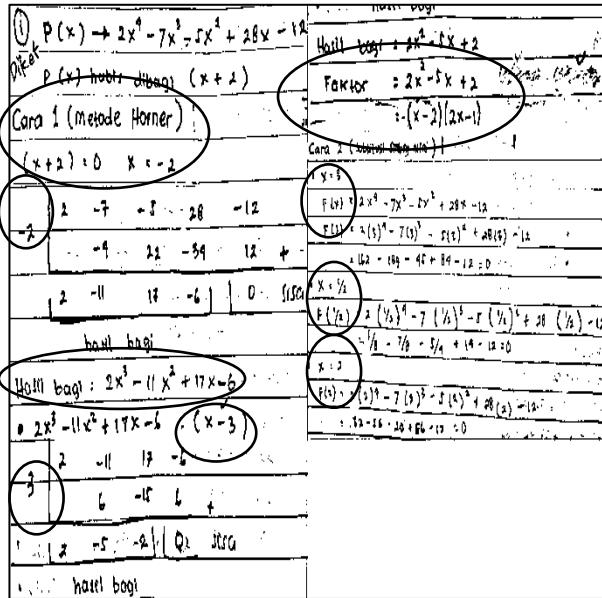 ①
Diket
P(x) → 2x⁴ - 7x³ - 5x² + 28x - 12
P(x) habis dibagi (x + 2)
Cara 1 (metode Horner)
(x + 2) = 0 x = -2
-2 | 2 -7 -5 28 -12
-4 22 -34 12 +
2 -11 17 -6 | 0 sisa
hasil bagi
Hasil bagi : 2x³ - 11x² + 17x - 6
• 2x³ - 11x² + 17x - 6 (x - 3)
3 | 2 -11 17 -6
6 -15 6 +
2 -5 2 | 0 sisa
hasil bagi
hasil bagi
Hasil bagi : 2x² - 5x + 2
Faktor : 2x² - 5x + 2
: (x - 2)(2x - 1)
Cara 2
x = 3
F(x) = 2x⁴ - 7x³ - 5x² + 28x - 12
F(3) = 2(3)⁴ - 7(3)³ - 5(3)² + 28(3) - 12
= 162 - 189 - 45 + 84 - 12 = 0
• x = 1/2
F(1/2) = 2(1/2)⁴ - 7(1/2)³ - 5(1/2)² + 28(1/2) - 12
= 1/8 - 7/8 - 5/4 + 14 - 12 = 0
x = 2
F(2) = 2(2)⁴ - 7(2)³ - 5(2)² + 28(2) - 12
= 32 - 56 - 20 + 56 - 12 = 0